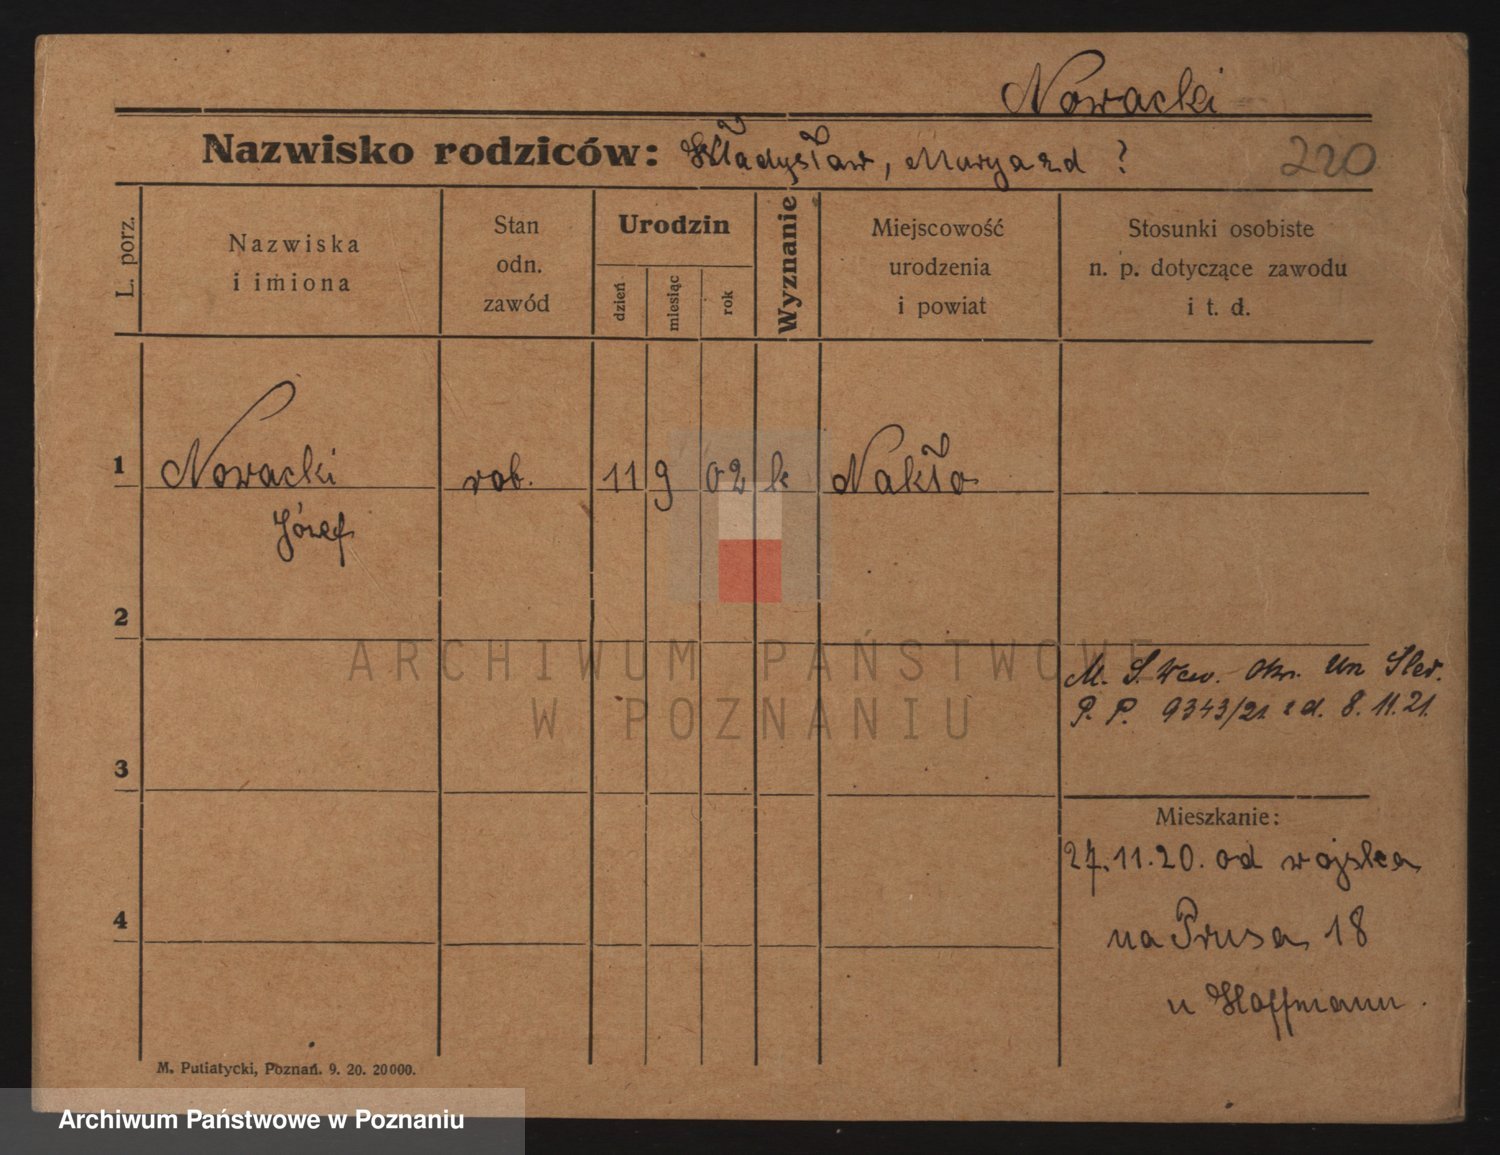 Nowacki
Nazwisko rodziców: Władysław, Marya z d ?
220
L. porz.
Nazwiska
i imiona
Stan
odn.
zawód
Urodzin
dzień
miesiąc
rok
Wyznanie
Miejscowość
urodzenia
i powiat
Stosunki osobiste
n. p. dotyczące zawodu
i t. d.
1 Nowacki rob. 11 9 02 k Nakło
Józef
2
ARCHIWUM PAŃSTWOWE
W POZNANIU
M. S. Wew. Okr. Un Śled.
P. P. 9343/21 z d. 8.11.21.
3
Mieszkanie:
27.11.20. od wojska
4
na Prusa 18
u Hoffmann.
M. Putiatycki, Poznań. 9. 20. 20000.
Archiwum Państwowe w Poznaniu